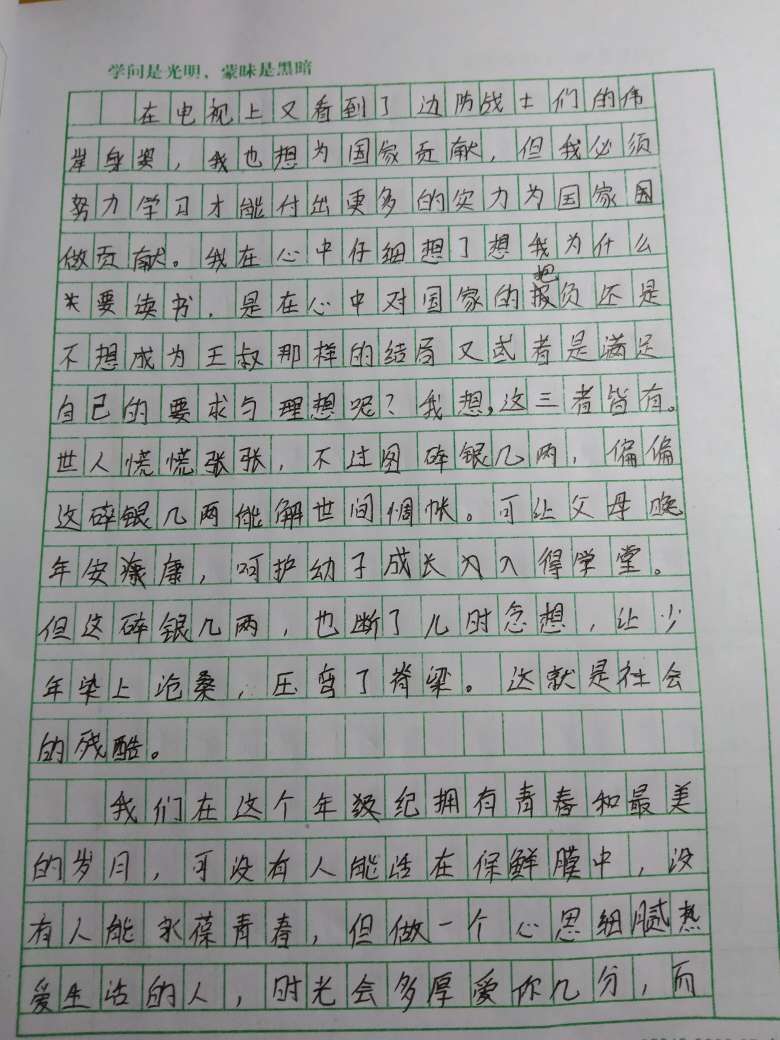 学问是光明，蒙昧是黑暗
在电视上又看到了边防战士们的伟
岸身姿，我也想为国家贡献，但我必须
努力学习才能付出更多的实力为国家
做贡献。我在心中仔细想了想我为什么
要读书，是在心中对国家的抱负还是
不想成为王叔那样的结局又或者是满足
自己的要求与理想呢？我想，这三者皆有。
世人慌慌张张，不过图碎银几两，偏偏
这碎银几两能解世间惆怅。可让父母晚
年安康，呵护幼子成长入得学堂。
但这碎银几两，也断了儿时念想，让少
年染上沧桑，压弯了脊梁。这就是社会
的残酷。
我们在这个年级纪拥有青春和最美
的岁月，可没有人能活在保鲜膜中，没
有人能永葆青春，但做一个心思细腻热
爱生活的人，时光会多厚爱你几分，而